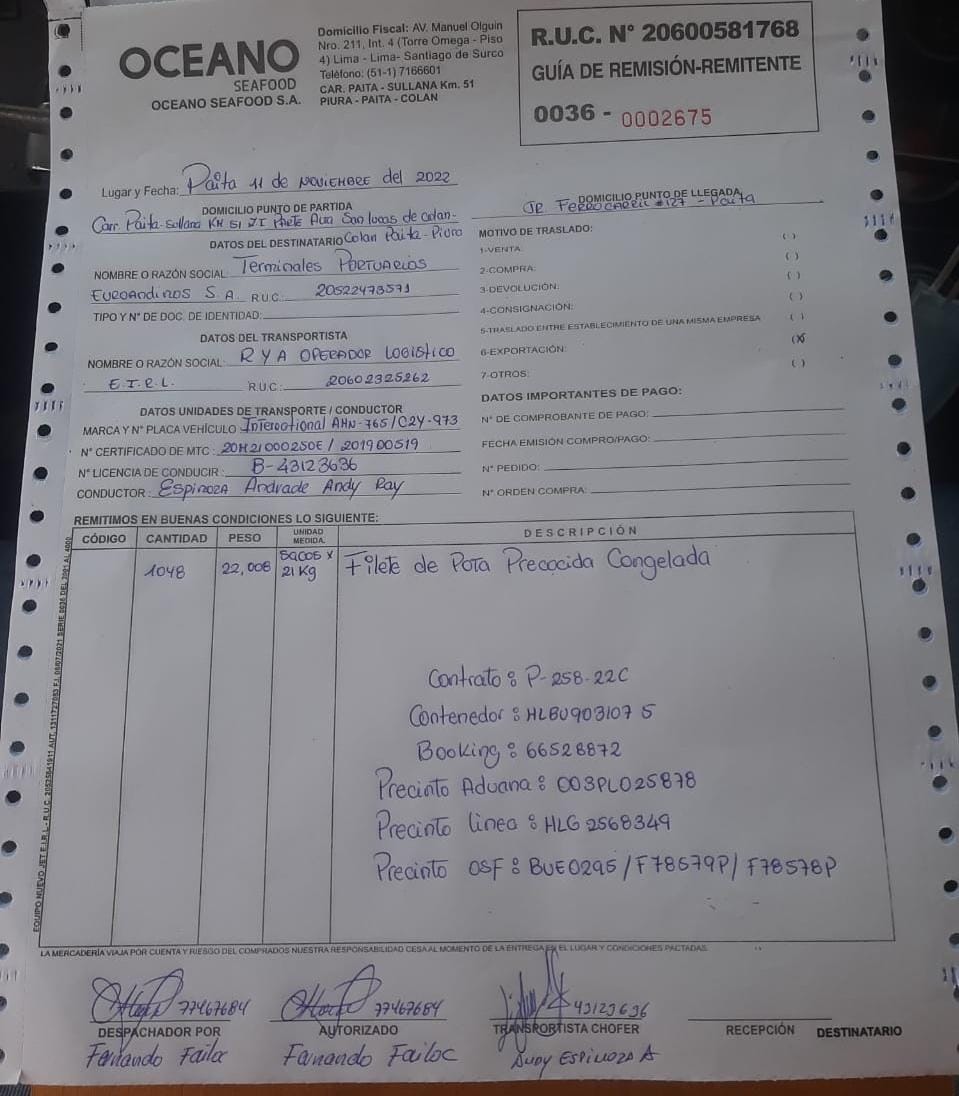 OCEANO
SEAFOOD
OCEANO SEAFOOD S.A.
Domicilio Fiscal: AV. Manuel Olguin
Nro. 211, Int. 4 (Torre Omega - Piso
4) Lima - Lima- Santiago de Surco
Teléfono: (51-1) 7166601
CAR. PAITA - SULLANA Km. 51
PIURA - PAITA - COLAN
R.U.C. N° 20600581768
GUÍA DE REMISIÓN-REMITENTE
0036 - 0002675
Lugar y Fecha: Paita 11 de NOVIEMBRE del 2022
DOMICILIO PUNTO DE PARTIDA
Carr. Paita-Sullana KM 51 ZI Parte Alta San Lucas de Colan-
Colan Paita-Piura
DOMICILIO PUNTO DE LLEGADA
JR. FERROCARRIL #127 - Paita
DATOS DEL DESTINATARIO
NOMBRE O RAZÓN SOCIAL: Terminales PORTUARIOS
EUROANDINOS S.A R.U.C.: 20522473571
TIPO Y N° DE DOC. DE IDENTIDAD:
DATOS DEL TRANSPORTISTA
NOMBRE O RAZÓN SOCIAL: R Y A OPERADOR LOGISTICO
E.I.R.L. R.U.C: 20602325262
DATOS UNIDADES DE TRANSPORTE / CONDUCTOR
MARCA Y N° PLACA VEHÍCULO International AHN-765/C2Y-973
N° CERTIFICADO DE MTC: 20M21000250E / 201900519
N° LICENCIA DE CONDUCIR: B-43123636
CONDUCTOR: ESPINOZA Andrade Andy Ray
MOTIVO DE TRASLADO:
1-VENTA: ( )
2-COMPRA: ( )
3-DEVOLUCIÓN: ( )
4-CONSIGNACIÓN: ( )
5-TRASLADO ENTRE ESTABLECIMIENTO DE UNA MISMA EMPRESA ( )
6-EXPORTACIÓN: (X)
7-OTROS: ( )
DATOS IMPORTANTES DE PAGO:
N° DE COMPROBANTE DE PAGO:
FECHA EMISIÓN COMPRO/PAGO:
N° PEDIDO:
N° ORDEN COMPRA:
REMITIMOS EN BUENAS CONDICIONES LO SIGUIENTE:
CÓDIGO CANTIDAD PESO UNIDAD MEDIDA. DESCRIPCIÓN
1048 22,008 Sacos x 21 Kg Filete de Pota Precocida Congelada
Contrato: P-258-22C
Contenedor: HLBU903107 5
Booking: 66528872
Precinto Aduana: 003PL025878
Precinto linea: HLG 2568349
Precinto OSF: BUE0295/F78579P/F78578P
LA MERCADERÍA VIAJA POR CUENTA Y RIESGO DEL COMPRADOS NUESTRA RESPONSABILIDAD CESA AL MOMENTO DE LA ENTREGA EN EL LUGAR Y CONDICIONES PACTADAS.
77467684 77467684 43123636
DESPACHADOR POR AUTORIZADO TRANSPORTISTA CHOFER RECEPCIÓN DESTINATARIO
Fernando Failoc Fernando Failoc Andy ESPINOZA A